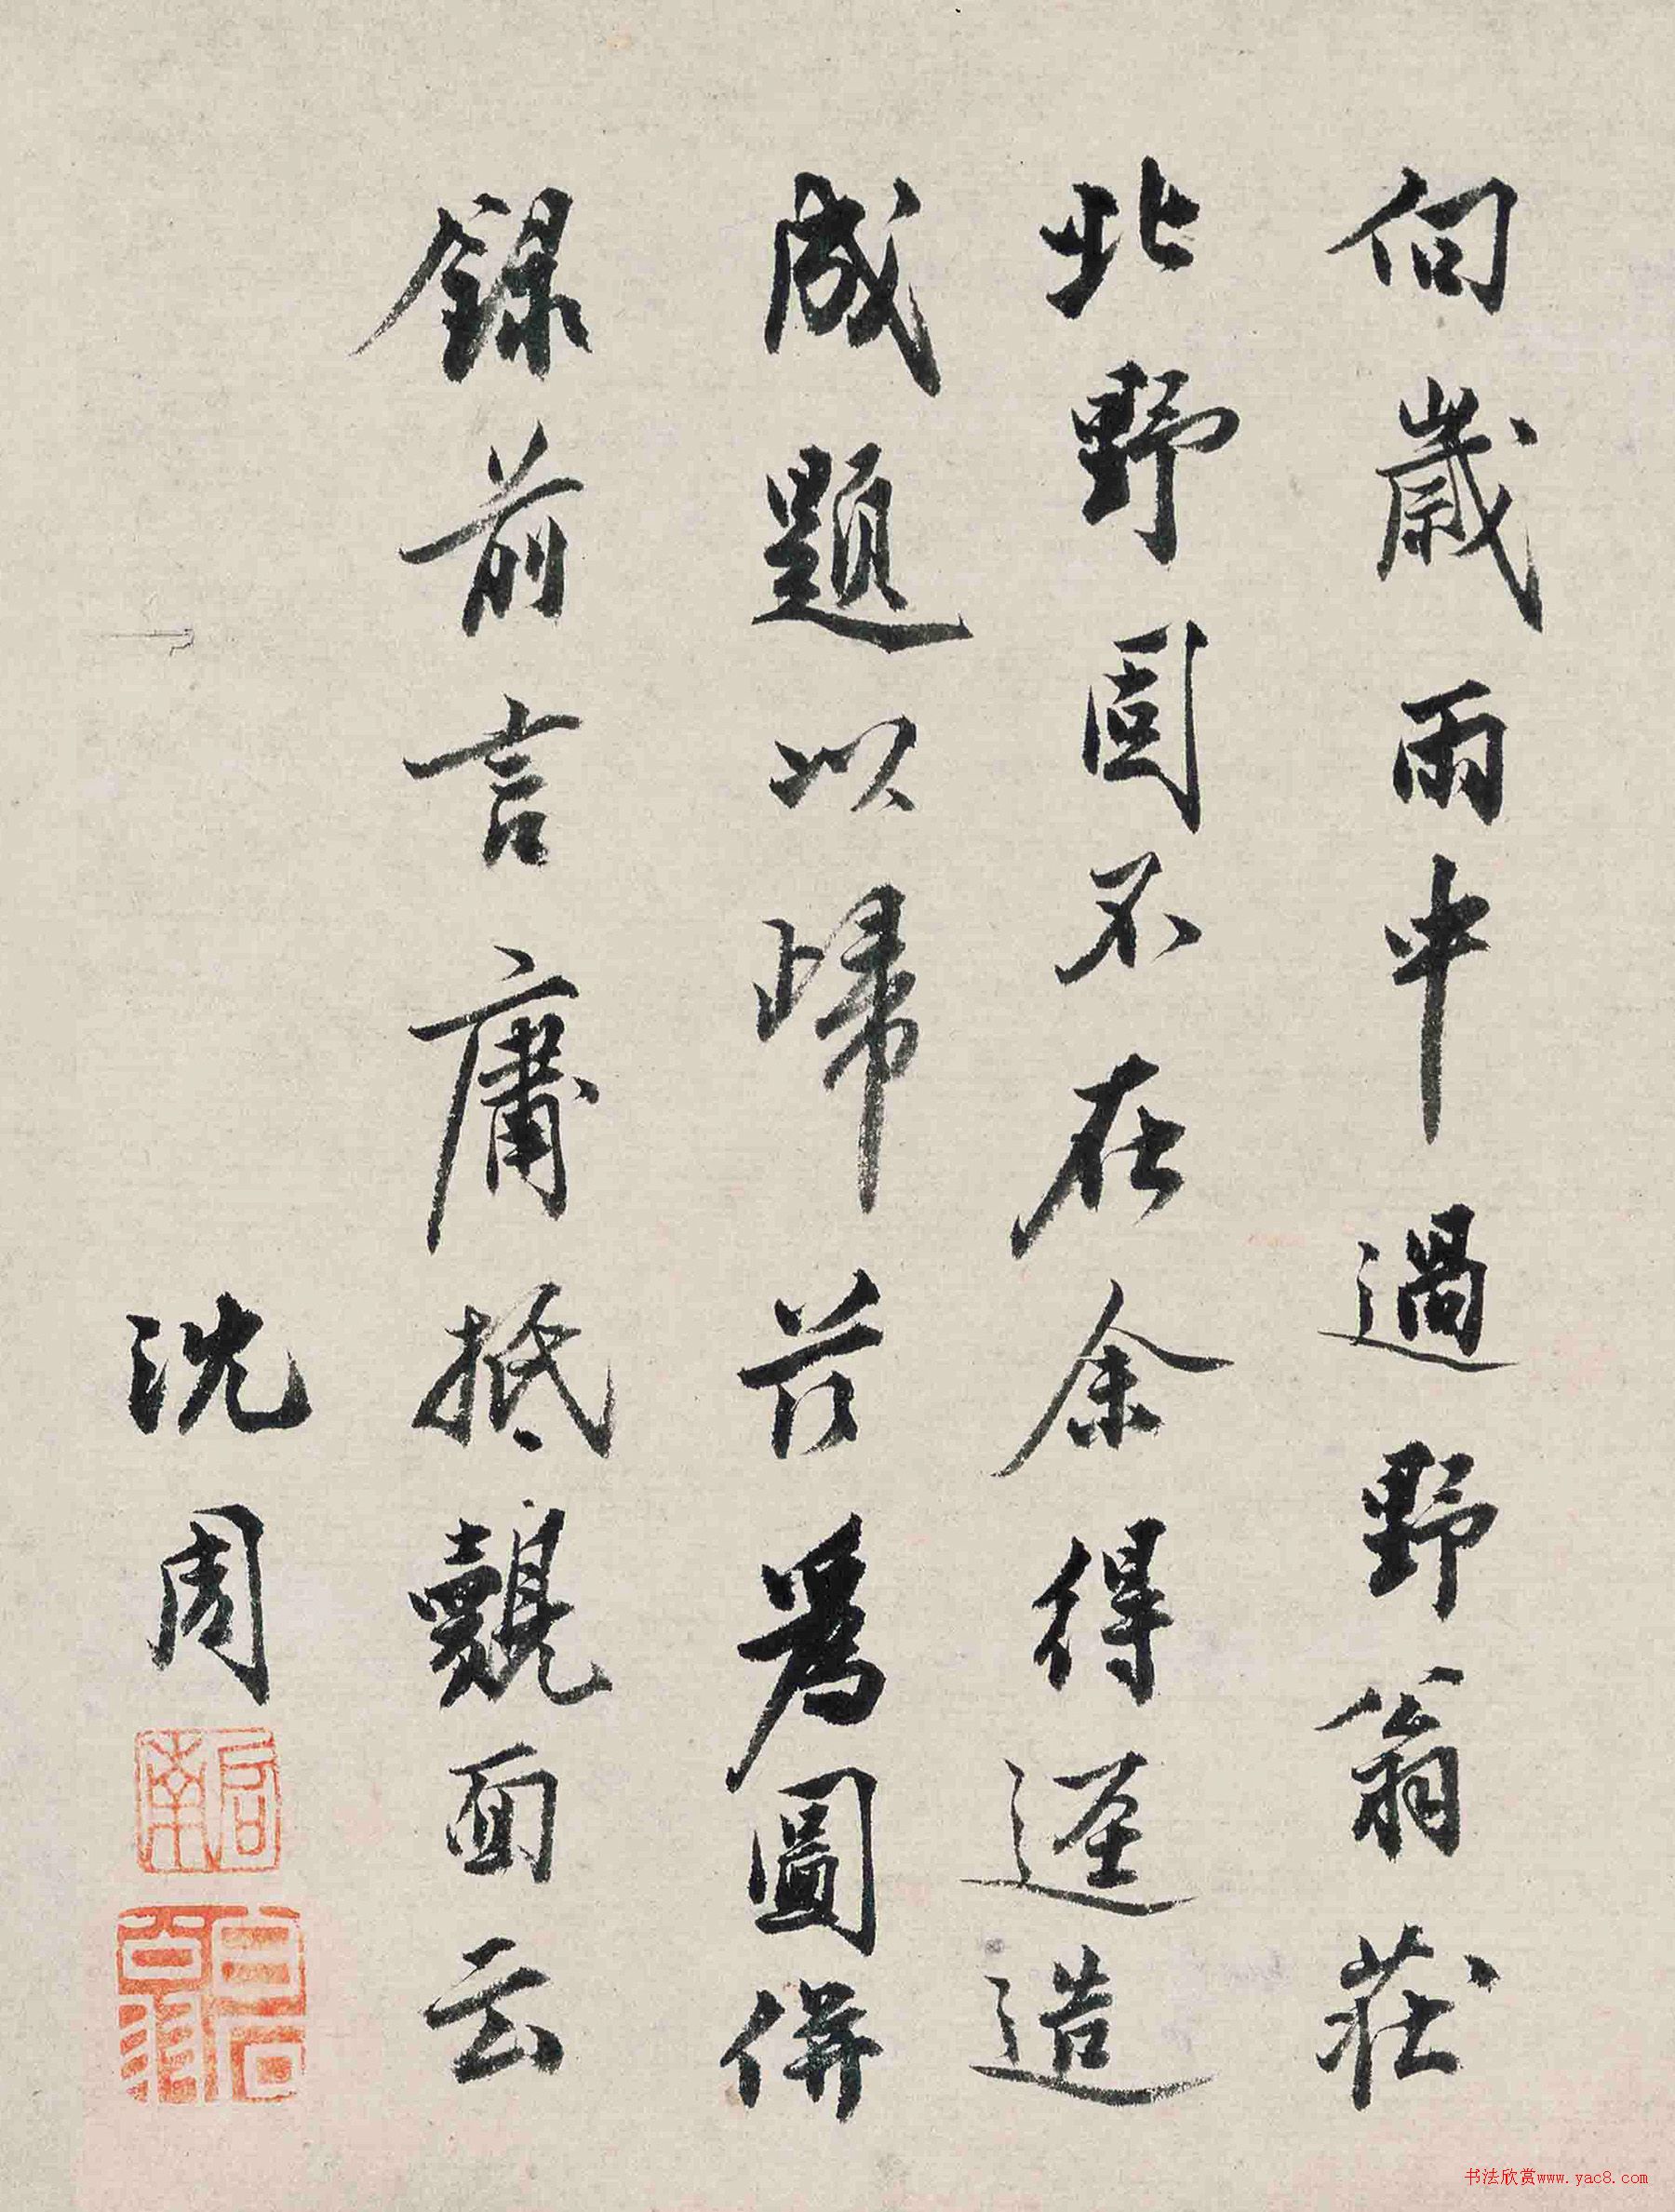 向歲雨中過野翁莊
北野固不在余得遂造
成題以歸茲為圖併
錄前言庸抵覿面云
沈周
啟南
白石翁
书法欣赏www.yac8.com